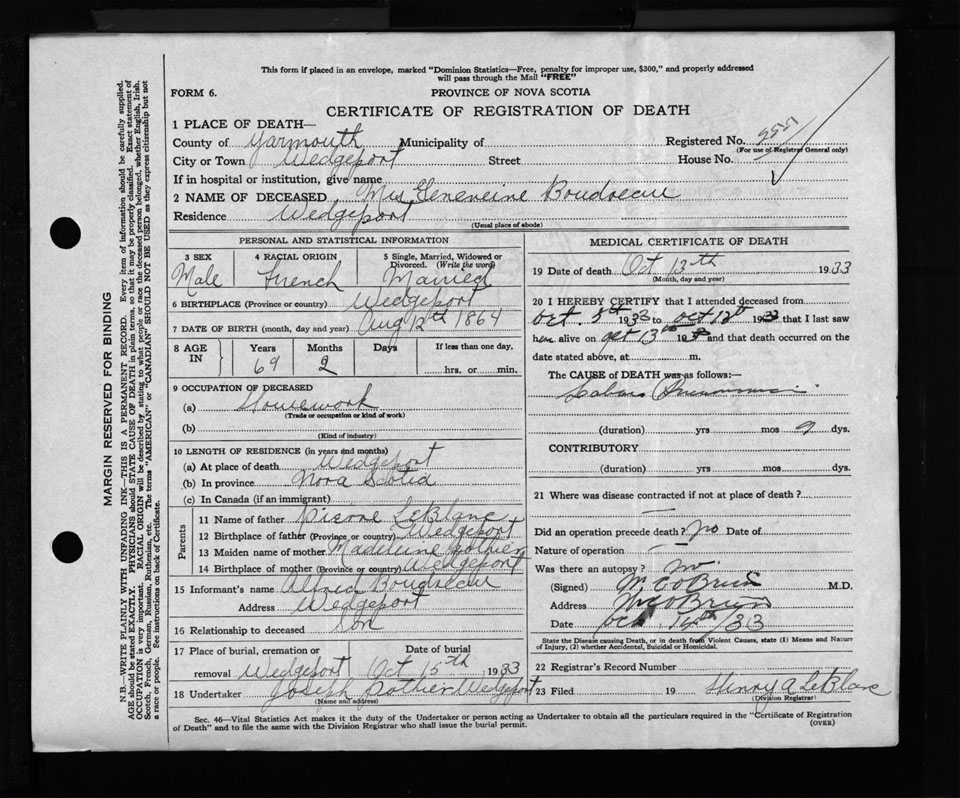 This form if placed in an envelope, marked "Dominion Statistics—Free, penalty for improper use, $300," and properly addressed
will pass through the Mail "FREE"
FORM 6.
PROVINCE OF NOVA SCOTIA
CERTIFICATE OF REGISTRATION OF DEATH
1 PLACE OF DEATH—
County of Yarmouth Municipality of Registered No.
(For use of Registrar General only)
City or Town Wedgeport Street House No.
If in hospital or institution, give name
2 NAME OF DECEASED Mrs Geneveine Boudreau
Residence Wedgeport
(Usual place of abode)
PERSONAL AND STATISTICAL INFORMATION
3 SEX 4 RACIAL ORIGIN 5 Single, Married, Widowed or
Divorced. (Write the word)
Male French Married
6 BIRTHPLACE (Province or country) Wedgeport
7 DATE OF BIRTH (month, day and year) Aug 12th 1864
8 AGE IN Years Months Days If less than one day,
69 2 hrs. or min.
9 OCCUPATION OF DECEASED
(a) Housework
(Trade or occupation or kind of work)
(b)
(Kind of industry)
10 LENGTH OF RESIDENCE (in years and months)
(a) At place of death Wedgeport
(b) In province Nova Scotia
(c) In Canada (if an immigrant)
Parents
11 Name of father Pierre LeBlanc
12 Birthplace of father (Province or country) Wedgeport
13 Maiden name of mother Madeleine
14 Birthplace of mother (Province or country) Wedgeport
15 Informant's name Alfred Boudreau
Address Wedgeport
16 Relationship to deceased Son
17 Place of burial, cremation or Date of burial
removal Wedgeport Oct 15th 1933
18 Undertaker Joseph Pothier Wedgeport
(Name and address)
MEDICAL CERTIFICATE OF DEATH
19 Date of death Oct 13th 1933
(Month, day and year)
20 I HEREBY CERTIFY that I attended deceased from
Oct. 1933 to Oct 12th 1933 that I last saw
her alive on Oct 13th 193 and that death occurred on the
date stated above, at m.
The CAUSE of DEATH was as follows:—
Lobar Pneumonia
(duration) yrs mos 9 dys.
CONTRIBUTORY
(duration) yrs mos dys.
21 Where was disease contracted if not at place of death?
Did an operation precede death? No Date of
Nature of operation
Was there an autopsy? No
(Signed) W. C. O'Brien M.D.
Address
Date Oct 14th /33
State the Disease causing Death, or in death from Violent Causes, state (1) Means and Nature
of Injury, (2) whether Accidental, Suicidal or Homicidal.
22 Registrar's Record Number
23 Filed 19 Henry A LeBlanc
Division Registrar
Sec. 46—Vital Statistics Act makes it the duty of the Undertaker or person acting as Undertaker to obtain all the particulars required in the "Certificate of Registration
of Death" and to file the same with the Division Registrar who shall issue the burial permit. (OVER)
MARGIN RESERVED FOR BINDING
N.B.—WRITE PLAINLY WITH UNFADING INK—THIS IS A PERMANENT RECORD. Every item of information should be carefully supplied.
AGE should be stated EXACTLY. PHYSICIANS should STATE CAUSE OF DEATH in plain terms, so that it may be properly classified. Exact statement of
OCCUPATION is very important. RACIAL ORIGIN will be described by stating to what people or race the deceased person belonged, whether English, Irish,
Scotch, French, German, Russian, Ruthenian, etc. The terms "AMERICAN" or "CANADIAN" SHOULD NOT BE USED as they express citizenship but not
a race or people. See instructions on back of Certificate.